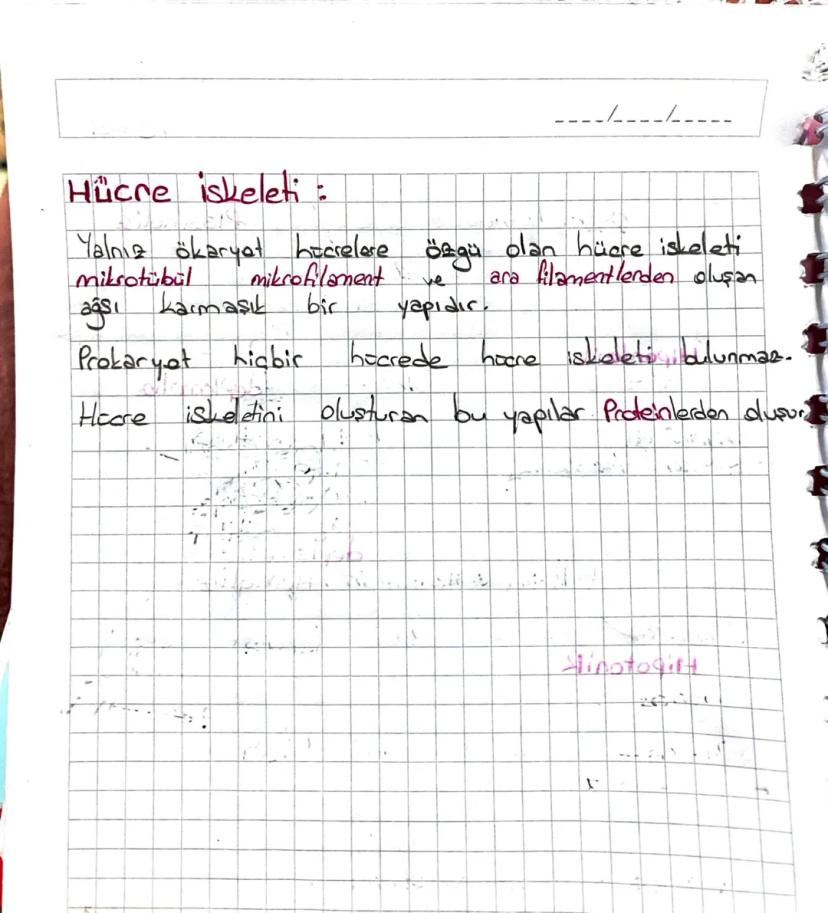 ----/----/-----
Hücre iskeleti :
Yalnız ökaryot hücrelere özgü olan hücre iskeleti
mikrotübül mikrofilament ve ara filamentlerden oluşan
ağsı karmaşık bir yapıdır.
Prokaryot hiçbir hücrede hücre iskeleti bulunmaz.
Hücre iskeletini oluşturan bu yapılar Proteinlerden oluşur
Hipotonik